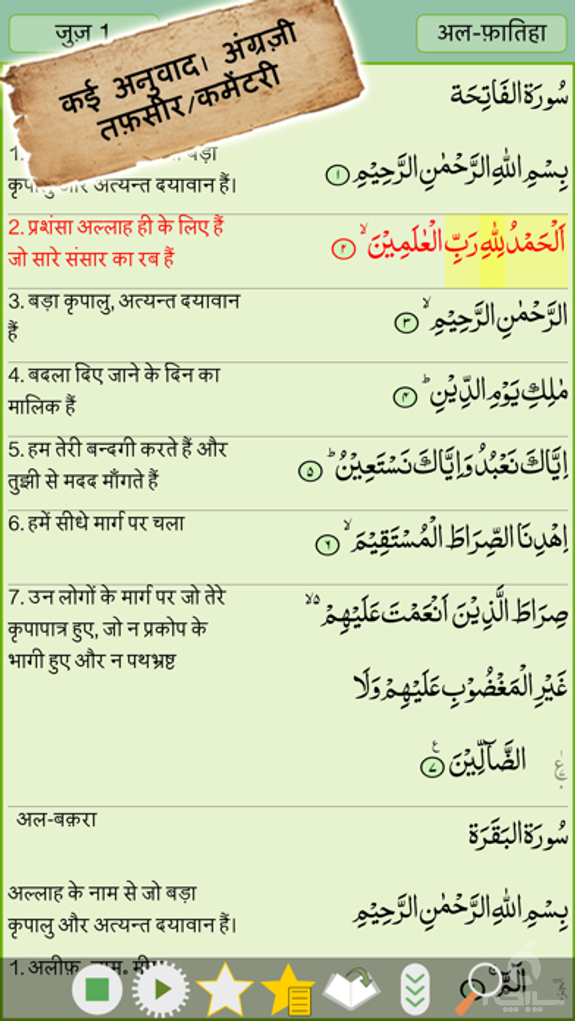 जुज़ 1
अल-फ़ातिहा
कई अनुवाद। अंग्रज़ी
तफ़सीर/कमेंटरी
سُورَة الفَاتِحَة
1.
बड़ा
कृपालु और अत्यन्त दयावान हैं।
بِسْمِ اللّٰهِ الرَّحْمٰنِ الرَّحِيْمِ ١
2. प्रशंसा अल्लाह ही के लिए हैं
जो सारे संसार का रब हैं
اَلْحَمْدُ لِلّٰهِ رَبِّ الْعٰلَمِيْنَ ۙ ٢
3. बड़ा कृपालु, अत्यन्त दयावान
हैं
الرَّحْمٰنِ الرَّحِيْمِ ۙ ٣
4. बदला दिए जाने के दिन का
मालिक हैं
مٰلِكِ يَوْمِ الدِّيْنِ ؕ ۴
5. हम तेरी बन्दगी करते हैं और
तुझी से मदद माँगते हैं
اِيَّاكَ نَعْبُدُ وَاِيَّاكَ نَسْتَعِيْنُ ؕ ۵
6. हमें सीधे मार्ग पर चला
اِهْدِنَا الصِّرَاطَ الْمُسْتَقِيْمَ ۙ ۶
7. उन लोगों के मार्ग पर जो तेरे
कृपापात्र हुए, जो न प्रकोप के
भागी हुए और न पथभ्रष्ट
صِرَاطَ الَّذِيْنَ اَنْعَمْتَ عَلَيْهِمْ ۙ۬
غَيْرِ الْمَغْضُوْبِ عَلَيْهِمْ وَلَا
الضَّآلِّيْنَ ٧
अल-बक़रा
سُورَة البَقَرَة
अल्लाह के नाम से जो बड़ा
कृपालु और अत्यन्त दयावान हैं।
بِسْمِ اللّٰهِ الرَّحْمٰنِ الرَّحِيْمِ
1. अलीफ़॰ लाम॰ मीम
الٓمّٓ